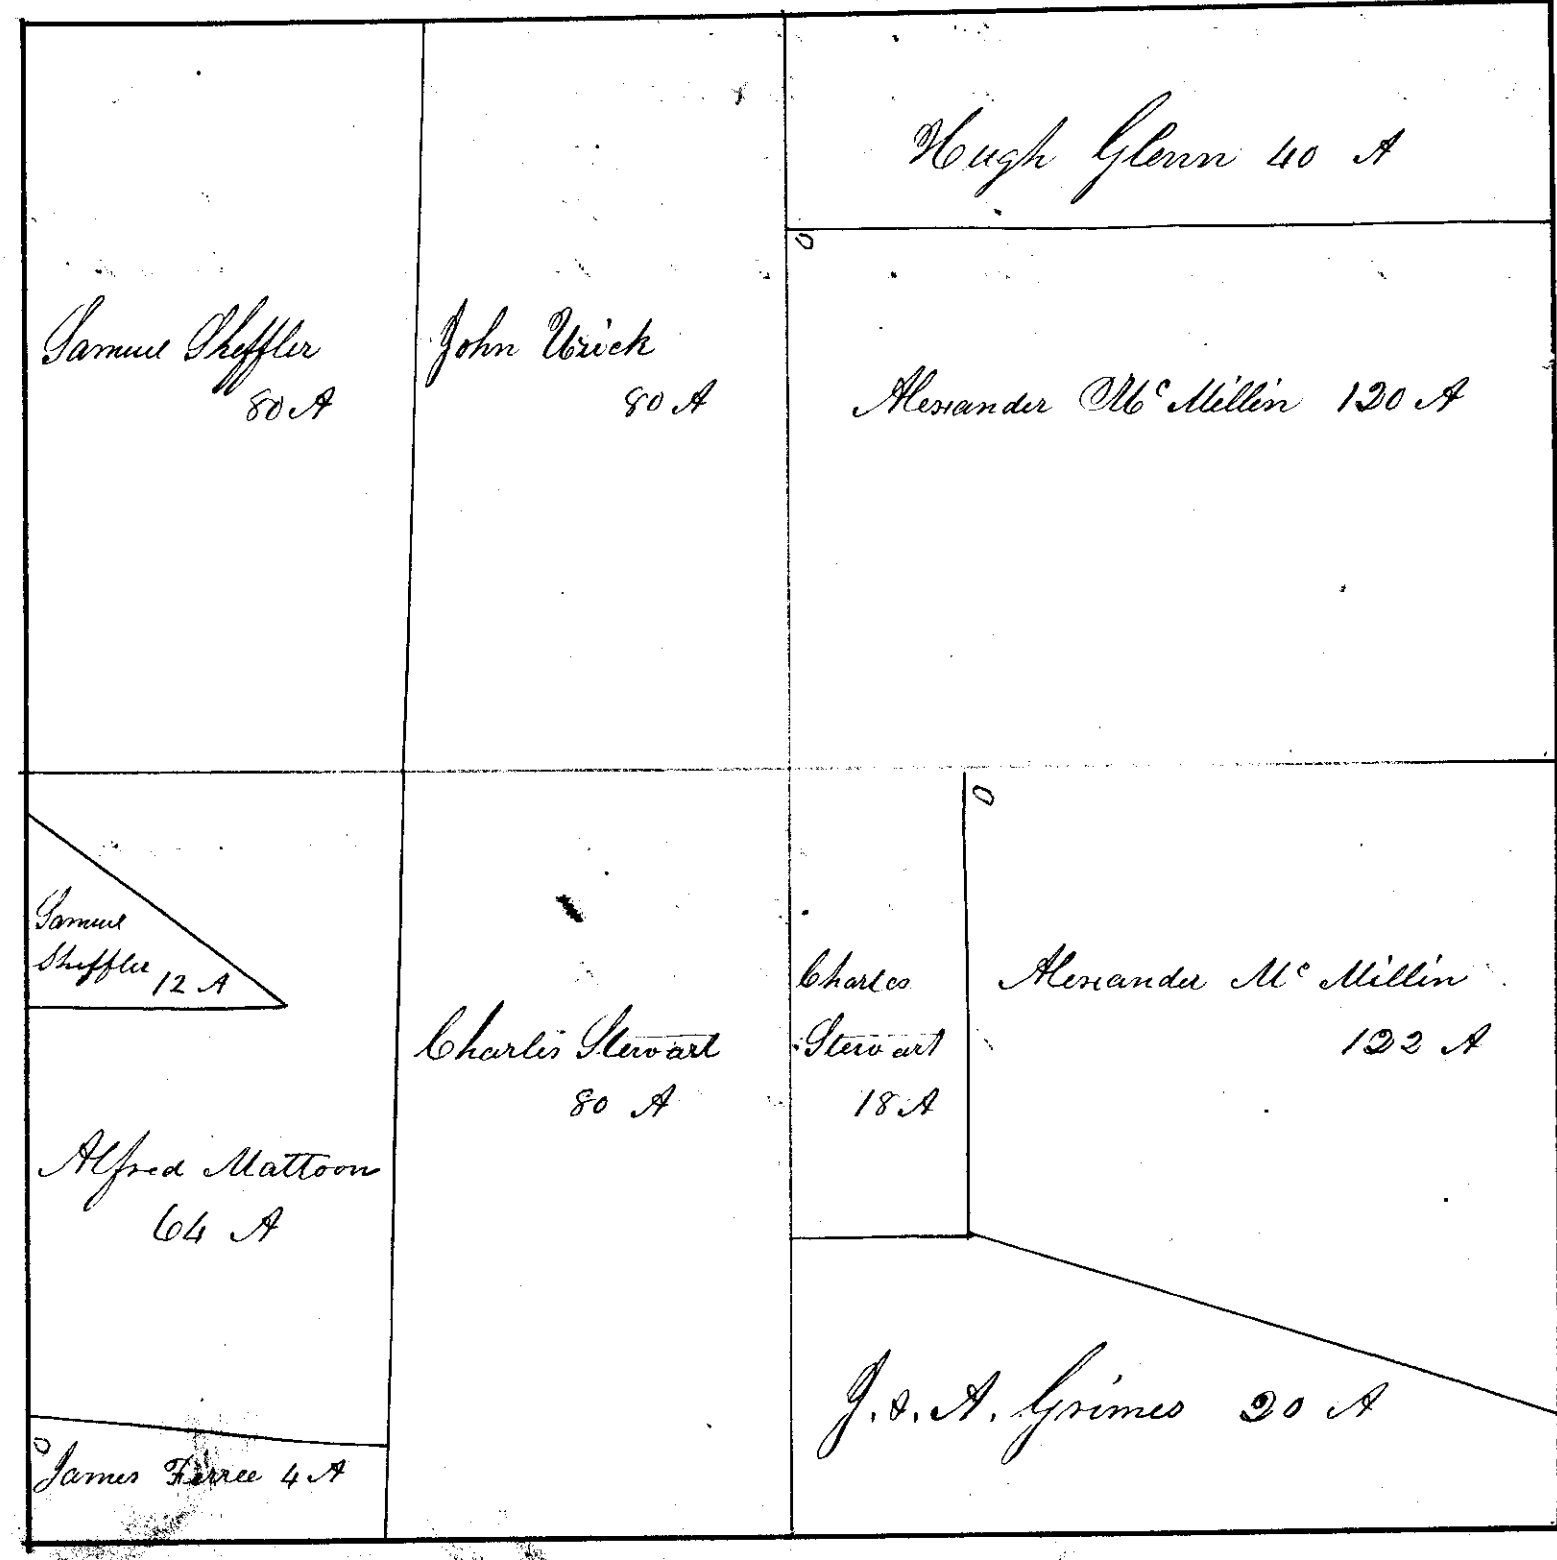 Hugh Glenn 40 A
Samuel Sheffler
80 A
John Uzick
80 A
Alexander McMillin 120 A
Samuel
Sheffler 12 A
Alfred Mattoon
64 A
James Ferree 4 A
Charles Stewart
80 A
Charles
Stewart
18 A
Alexander Mc Millin
122 A
J. & A. Grimes 20 A